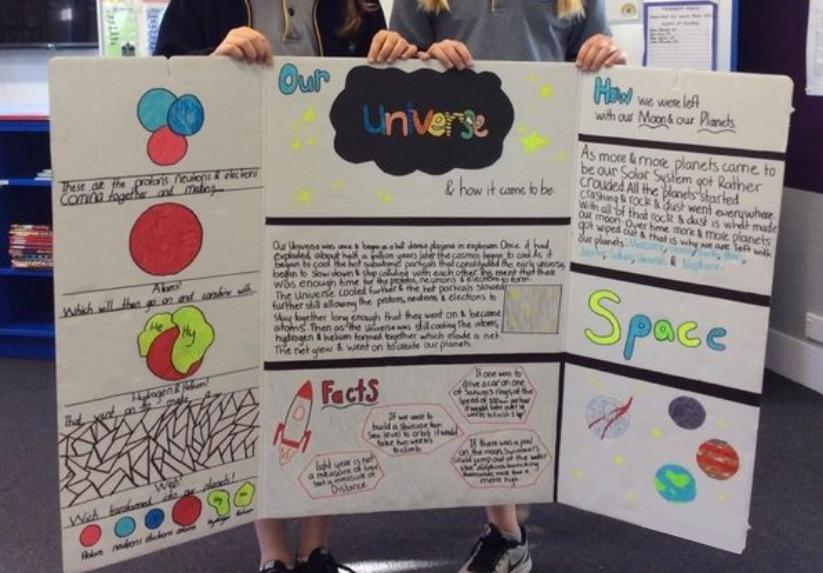 These are the protons neutrons & electrons
coming together and making...
Atoms!
Which will then go on and combine with
He Hy
Hydrogen & Helium!
That went on to make a...
Web!
Wich transformed into our planets!
neutrons electrons
Hydrogen
Our
Universe
& how it came to be
Our Universe was once a hot dense plasma in explosion Once it had
exploded about half a million years later the cosmos began to cool As it
began to cool the hot subatomic particals that constituted the early universe,
began to slow down & stop colliding with each other this ment that there
was enough time for the protons, neutrons & electrons to form.
The Universe cooled further & the hot particals slowed
further still allowing the protons, neutrons & electrons to
stay together long enough that they went on & became
atoms. Then as the Universe was still cooling The atoms,
hydrogen & helium formed together which made a net
The net grew & went on to create our planets.
Facts
If one was to
drive a car on one
of Saturn's rings at the
speed of
it would take
weeks to finish 1 lap
If we were to
build a staircase from
Sea level to orbit it would
take two weeks
to climb
light year is not
a measure of time
but a measure of
Distance.
If there was a pool
on the moon Swimmers
could jump out of the water
like dolphins launching
themselves more than a
metre high
How we were left
with our Moon & our Planets
As more & more planets came to
be our Solar System got Rather
Crouded All the planets started
crashing & rock & dust went everywhere
With all of that rock & dust is what made
our moon Over time more & more planets
got wiped out & that is why we are left with
our planets: Mercury,
& Neptune.
Space